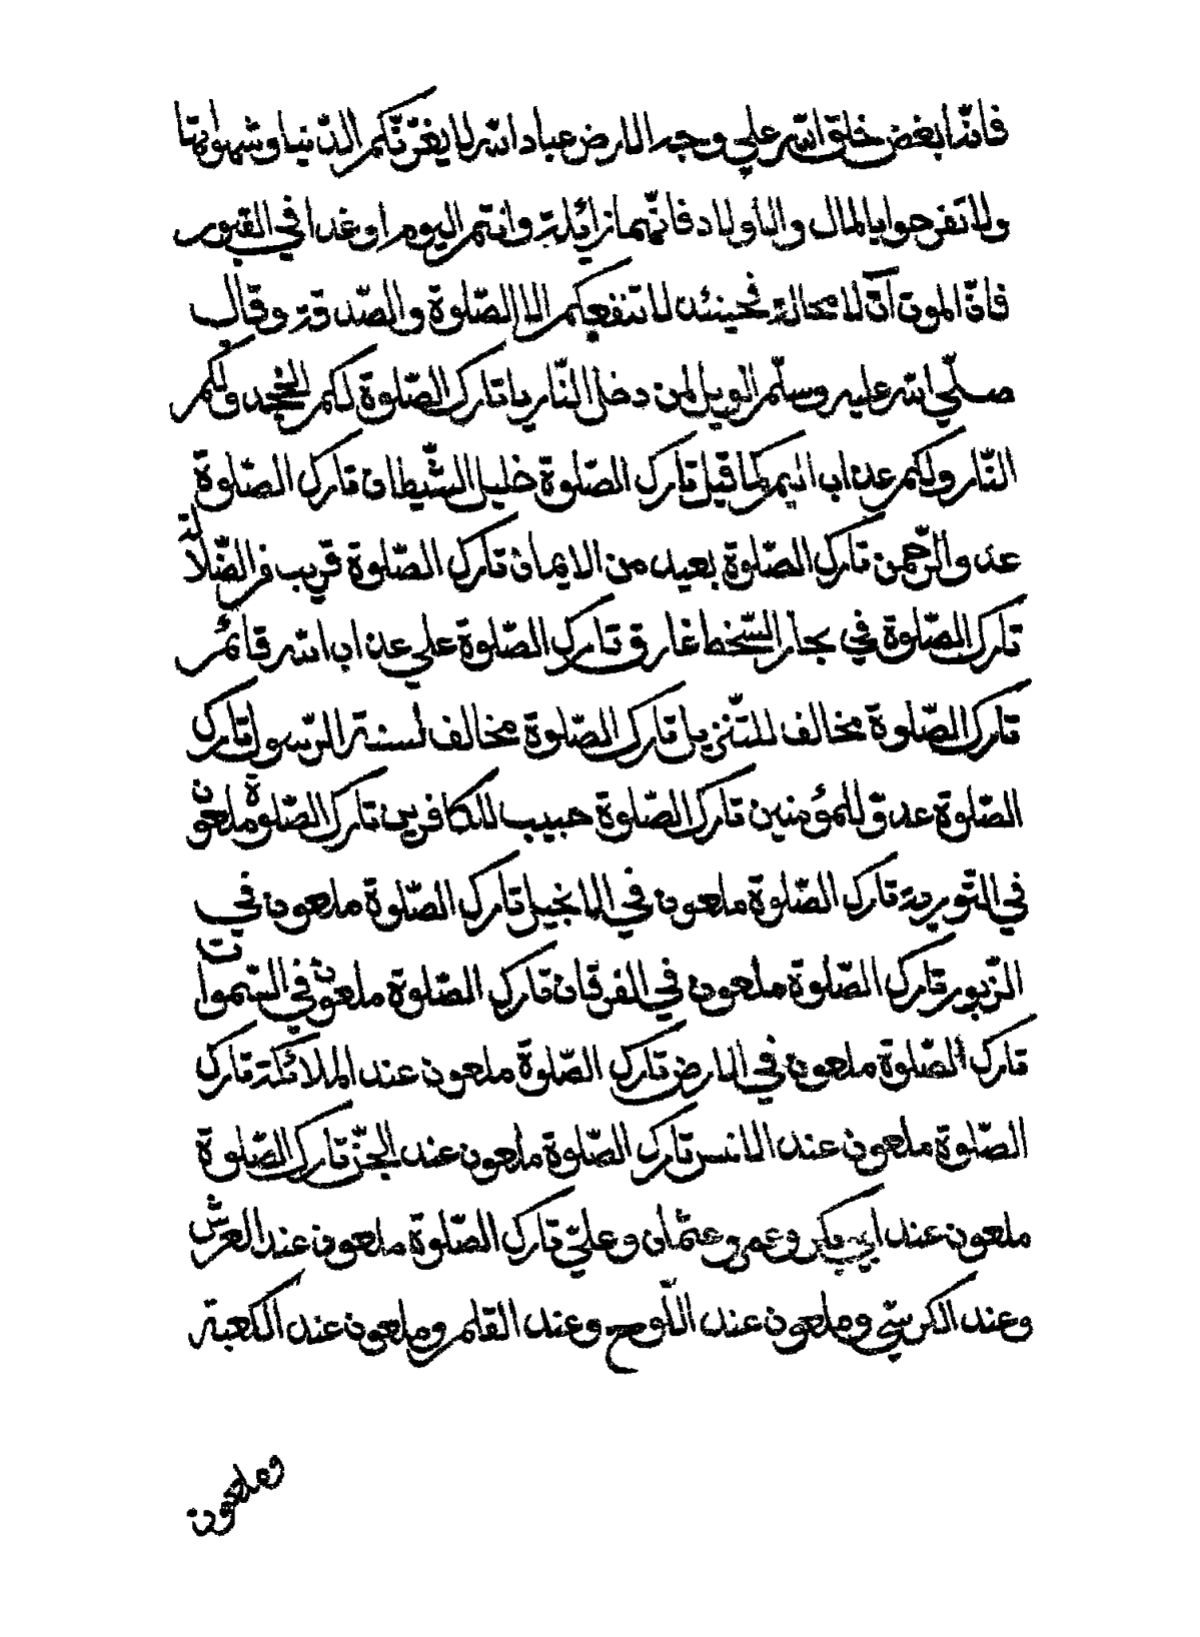 فانّه ابغض خلق الله علي وجه الارض عباد الله لا يغرّنّكم الدّنيا وشهواتها
ولا تفرحوا بالمال والاولاد فانّهما زائلة وانتم اليوم او غدا في القبور
فانّ الموت آت لا محالة فحينئذ لا تنفعكم الا الصّلوة والصّدقة وقال
صلّي الله عليه وسلّم الويل لمن دخل النّار يا تارك الصّلوة لكم الجحد ولكم
النّار ولكم عذاب اليم كما قيل تارك الصّلوة خليل الشّيطان تارك الصّلوة
عدو الرّحمن تارك الصّلوة بعيد من الايمان تارك الصّلوة قريب من الضّلالة
تارك الصّلوة في بحار السّخط غارق تارك الصّلوة علي عذاب الله قائم
تارك الصّلوة مخالف للتّنزيل تارك الصّلوة مخالف لسنة الرّسول تارك
الصّلوة عدوّ للمؤمنين تارك الصّلوة حبيب للكافرين تارك الصّلوة ملعون
في التّورية تارك الصّلوة ملعون في الانجيل تارك الصّلوة ملعون في
الزّبور تارك الصّلوة ملعون في الفرقان تارك الصّلوة ملعون في السّموات
تارك الصّلوة ملعون في الارض تارك الصّلوة ملعون عند الملائكة تارك
الصّلوة ملعون عند الانس تارك الصّلوة ملعون عند الجنّ تارك الصّلوة
ملعون عند ابي بكر وعمر وعثمان وعليّ تارك الصّلوة ملعون عند العرش
وعند الكرسّي وملعون عند اللّوح وعند القلم وملعون عند الكعبة
وملعون